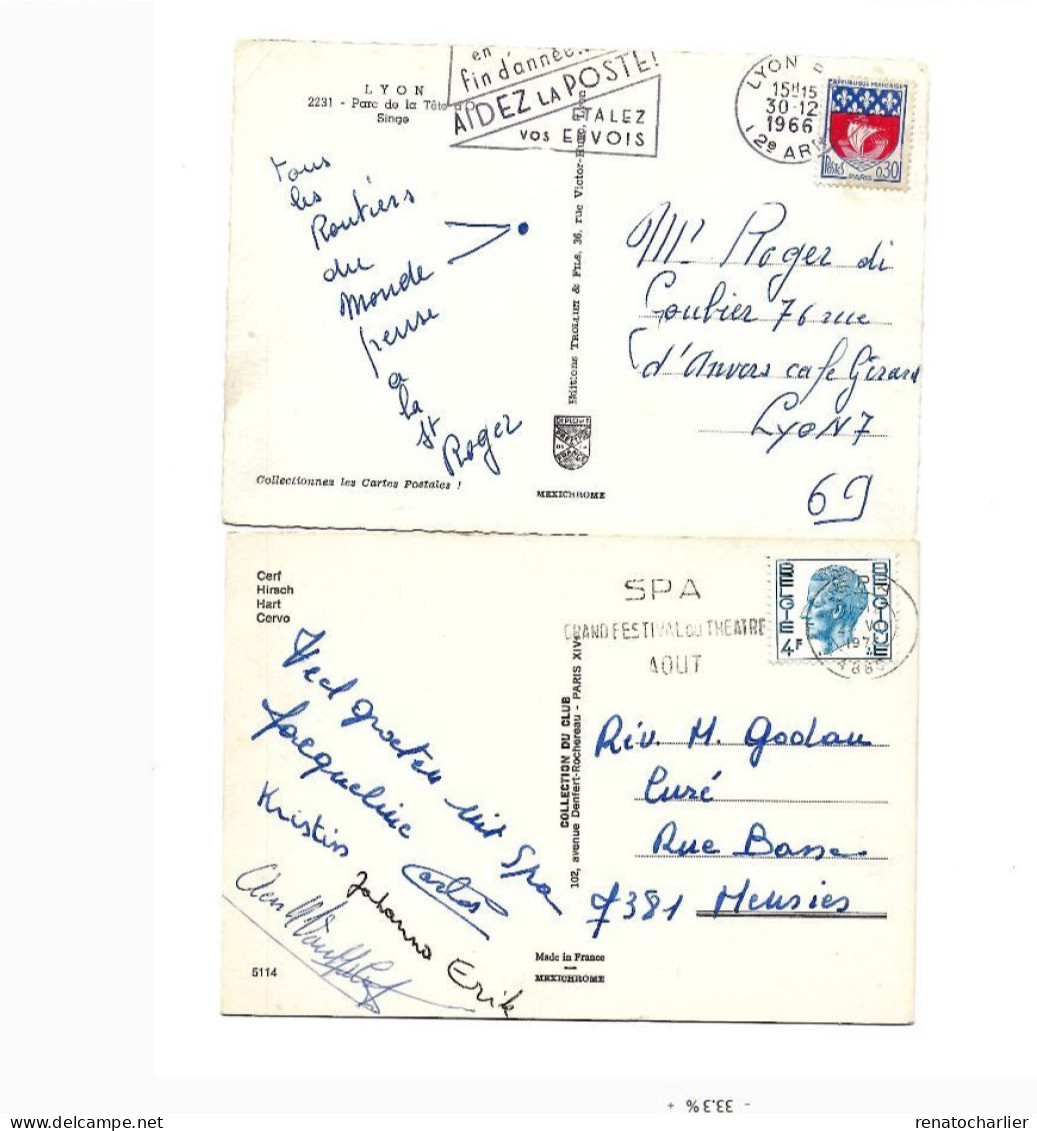 LYON
2231 - Parc de la Tête d'Or
Singe
en
fin d'année..
AIDEZ LA POSTE!
ETALEZ
VOS ENVOIS
LYON
15H15
30-12
1966
12e ARR
REPUBLIQUE FRANÇAISE
POSTES
0,30
PARIS
tous
les
Routiers
du
Monde
pense
a
la
St
Roger
Editions TROLLIET & FILS, 36, rue Victor-Hugo, Lyon
Mr Roger di
Goubier 76 rue
d'Anvers cafe Gérard
LYON 7
69
Collectionnez les Cartes Postales !
MEXICHROME
Cerf
Hirsch
Hart
Cervo
SPA
GRAND FESTIVAL DU THEATRE
AOUT
BELGIE
BELGIQUE
4F
Veel groeten uit Spa
Jacqueline
Kristin
Carlos
Johanna
Erik
COLLECTION DU CLUB
102, avenue Denfert-Rochereau - PARIS XIVe
Rév. M. Godau
Curé
Rue Basse
7381 Meusies
5114
Made in France
MEXICHROME
- 33.3% +
renatocharlier